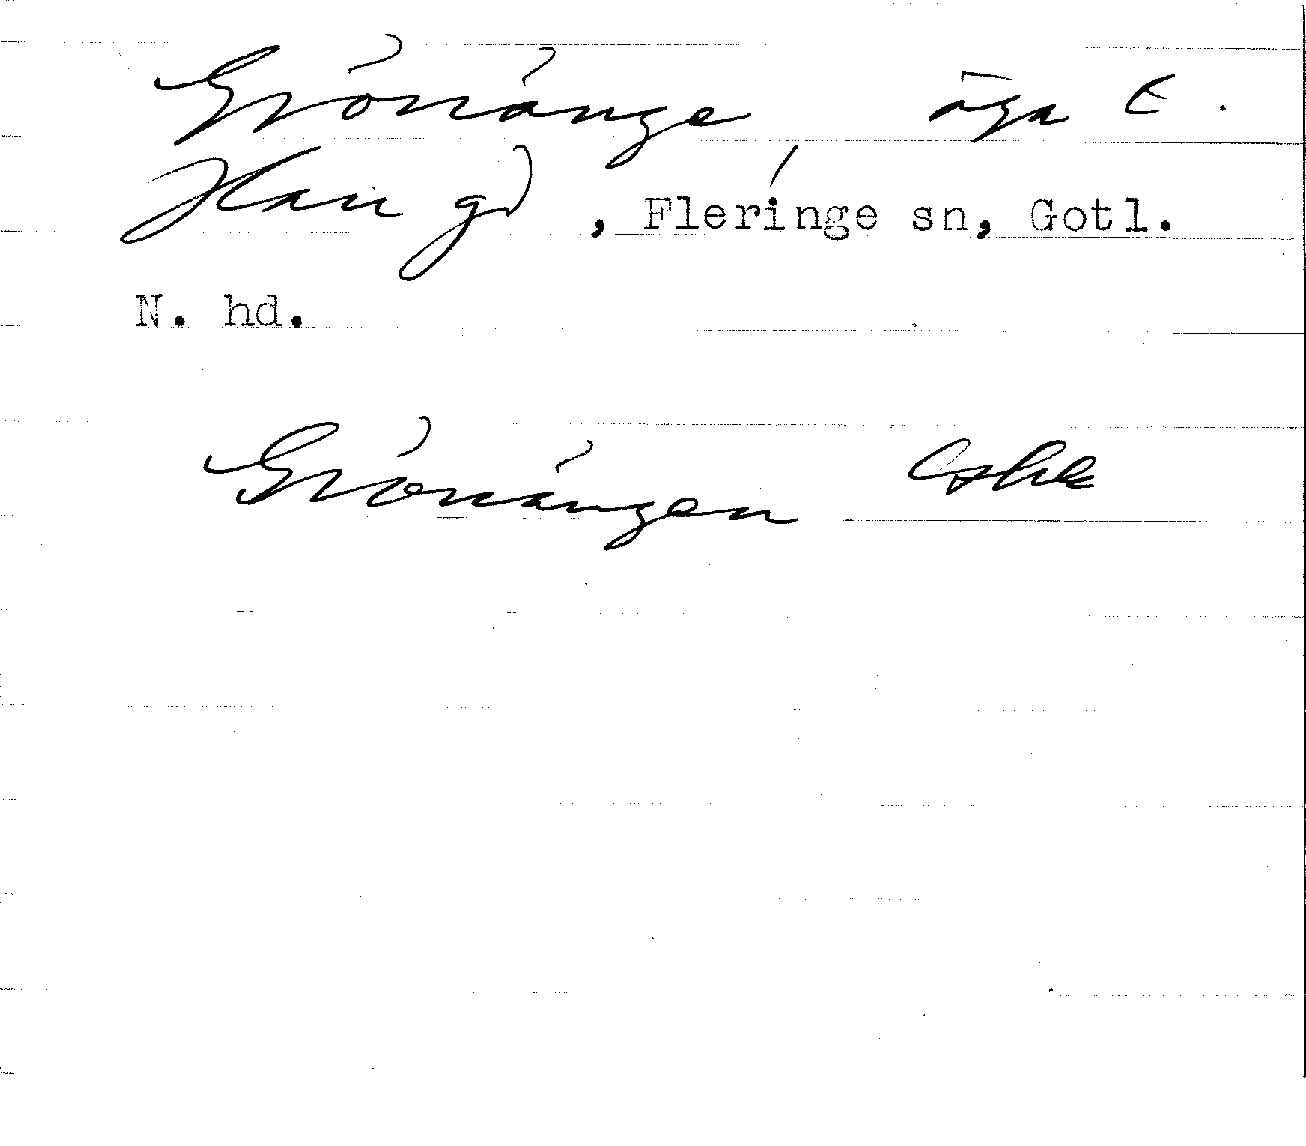 Grönänge äga E.
Hau gd, Fleringe sn, Gotl.
N. hd.
Grönängen